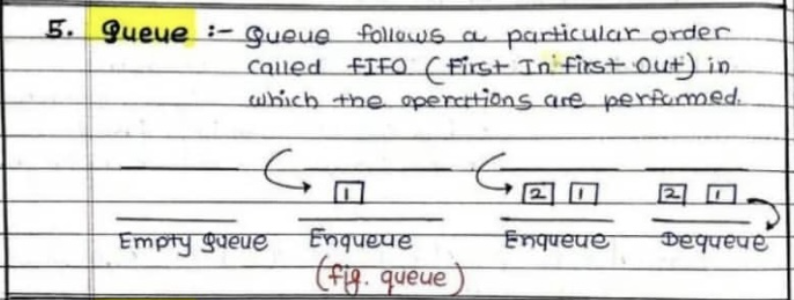 5. Queue :- Queue follows a particular order
called FIFO (First In first Out) in
which the operations are performed.
1 2 1 2 1
Empty Queue Enqueue Enqueue Dequeue
(fig. queue)